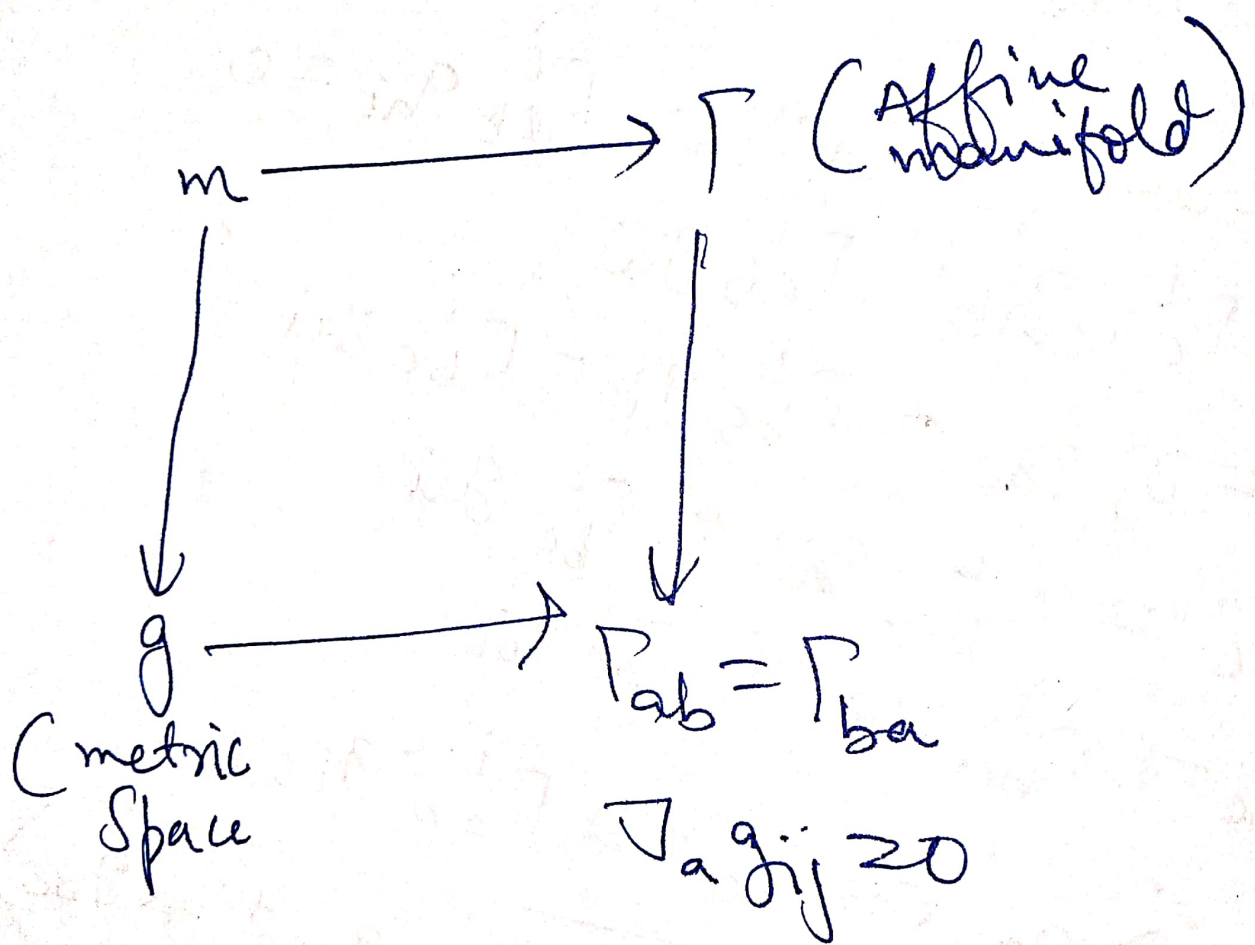 m → Γ (Affine
manifold)
g → Γab = Γba
(metric
Space
∇a gij = 0